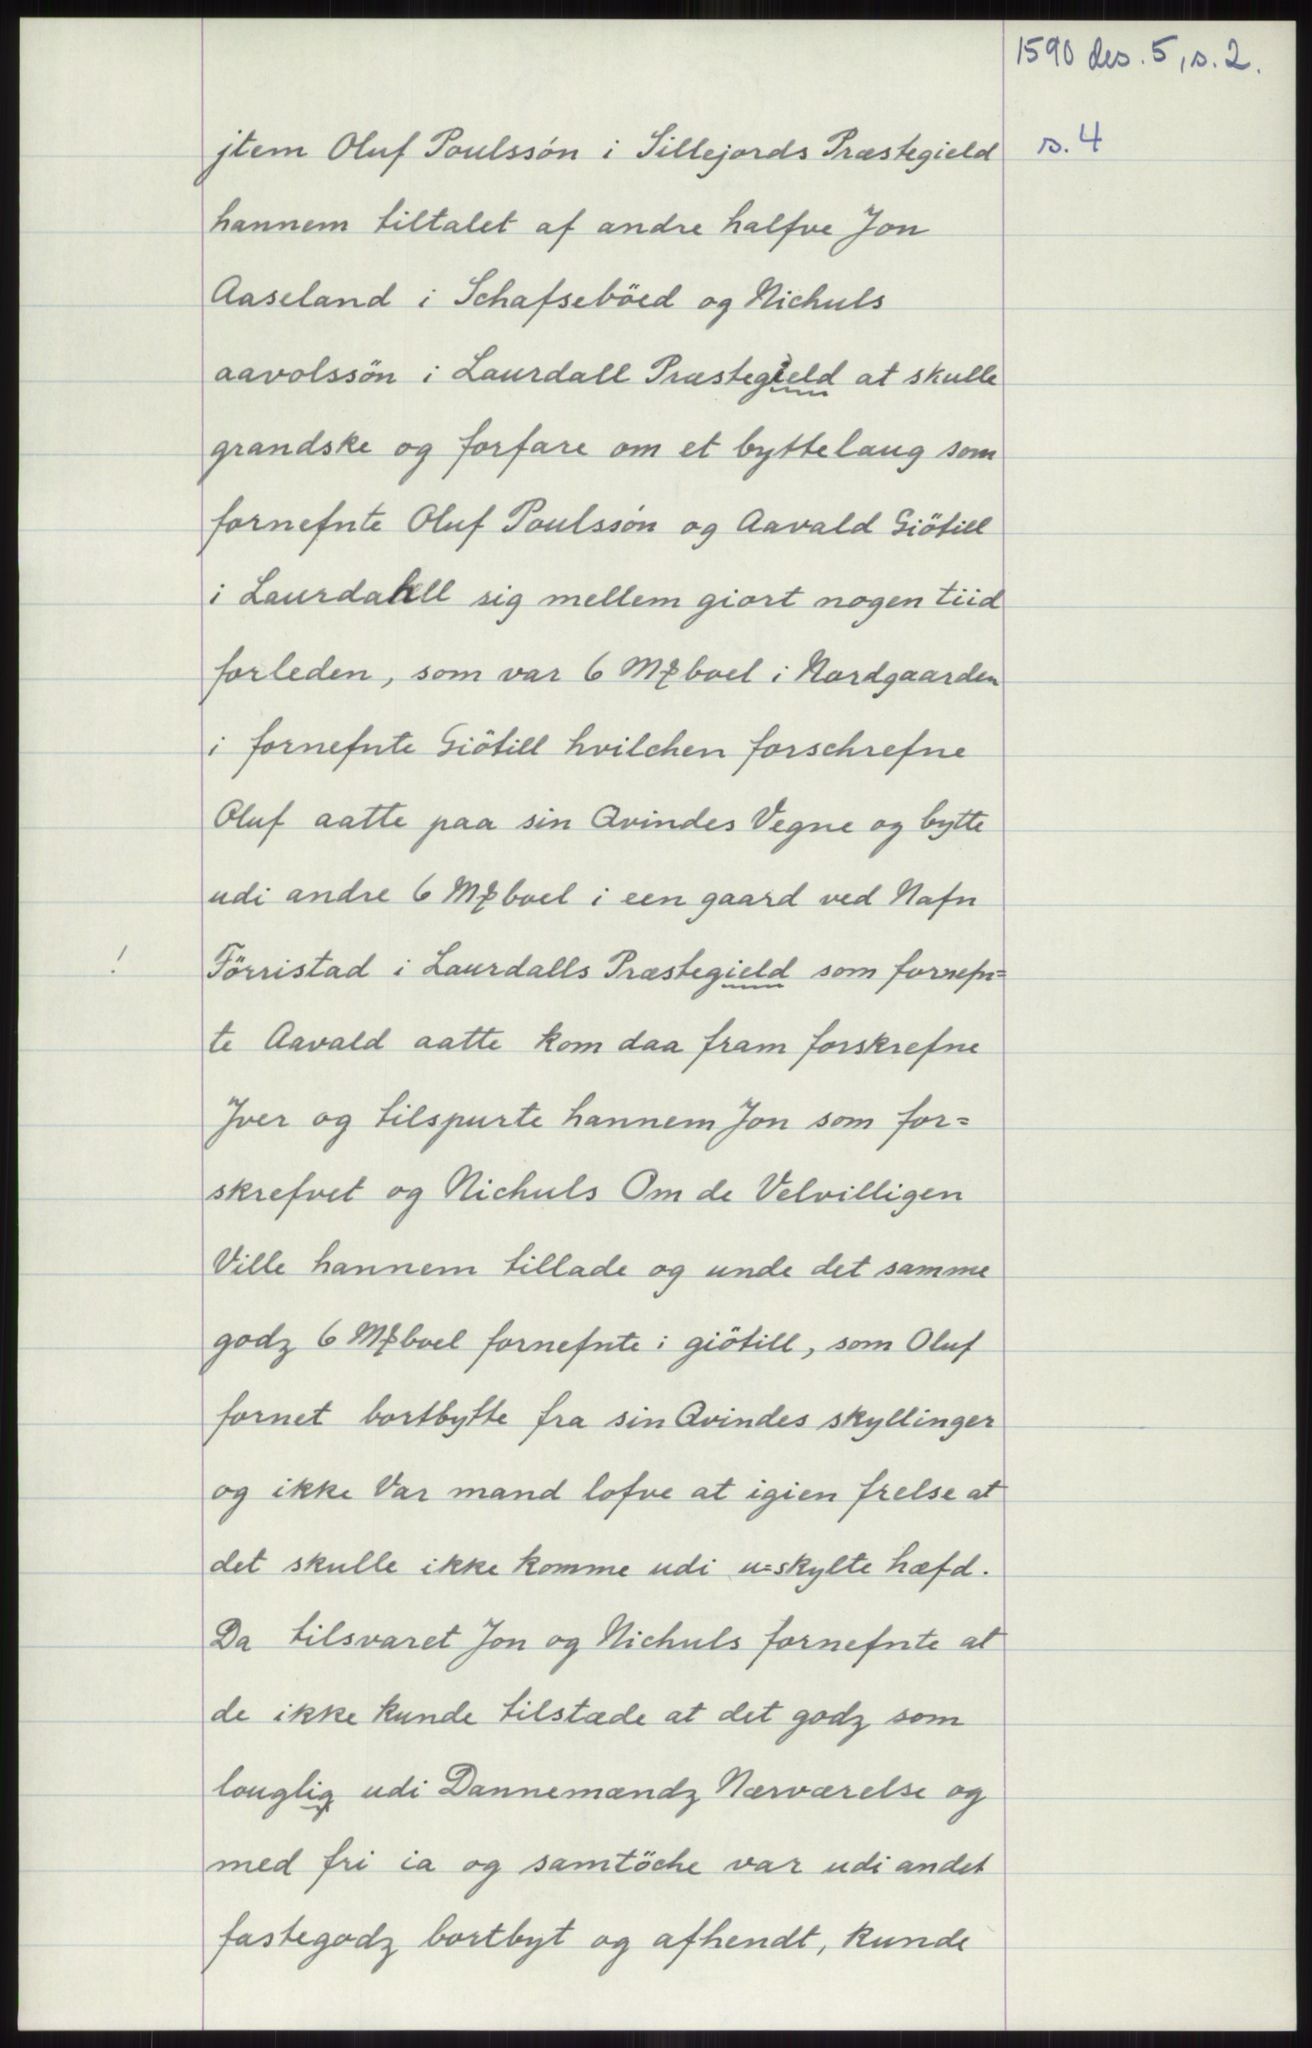 1590 des. 5, s. 2.
s. 4
jtem Oluf Poulssön i Sillejords Præstegield
hannem tiltalet af andre halfve Jon
Aaseland i Schafseböed og Nichuls
aavolssön i Laurdall Præstegield at skulle
grandske og forfare om et byttelaug som
fornefnte Oluf Poulssön og Aavald Giötill
i Laurdahll sig mellem giort nogen tiid
forleden, som var 6 Mꝭboel i Nordgaarden
i fornefnte Giötill hvilchen forschrefne
Oluf aatte paa sin Qvindes Vegne og bytte
udi andre 6 Mꝭboel i een gaard ved Nafn
! Törristad i Laurdalls Præstegield som fornefn=
te Aavald aatte kom daa fram forskrefne
Jver og tilspurte hannem Jon som for=
skrefvet og Nichuls Om de Velvilligen
Ville hannem tillade og unde det samme
godz 6 Mꝭboel fornefnte i giötill, som Oluf
fornet bortbytte fra sin Qvindes skyllinger
og ikke Var mand lofve at igien frelse at
det skulle ikke komme udi u=skylte hæfd.
Da tilsvaret Jon og Nichuls fornefnte at
de ikke kunde tilstæde at det godz som
louglig udi Dannemændz Nærværelse og
med fri ia og samtöche var udi andet
fastegodz bortbyt og afhendt, kunde